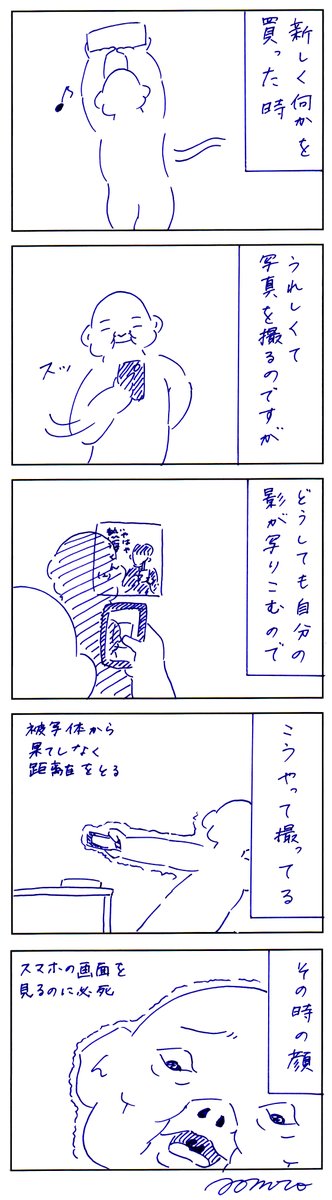 新しく何かを
買った時
うれしくて
写真を撮るのですが
スッ
どうしても自分の
影が写りこむので
こうやって撮ってる
被写体から
果てしなく
距離をとる
その時の顔
スマホの画面を
見るのに必死